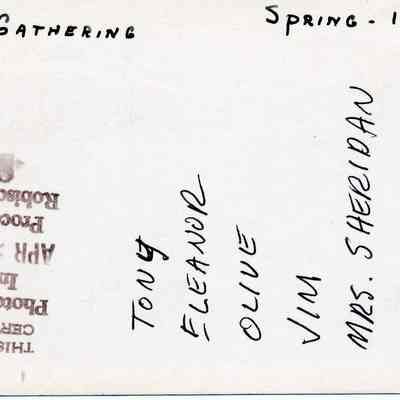 GATHERING
SPRING - 1
TONY
ELEANOR
OLIVE
JIM
MRS. SHERIDAN
THIS
CER
Photo
In
APR
Proc
Robiso